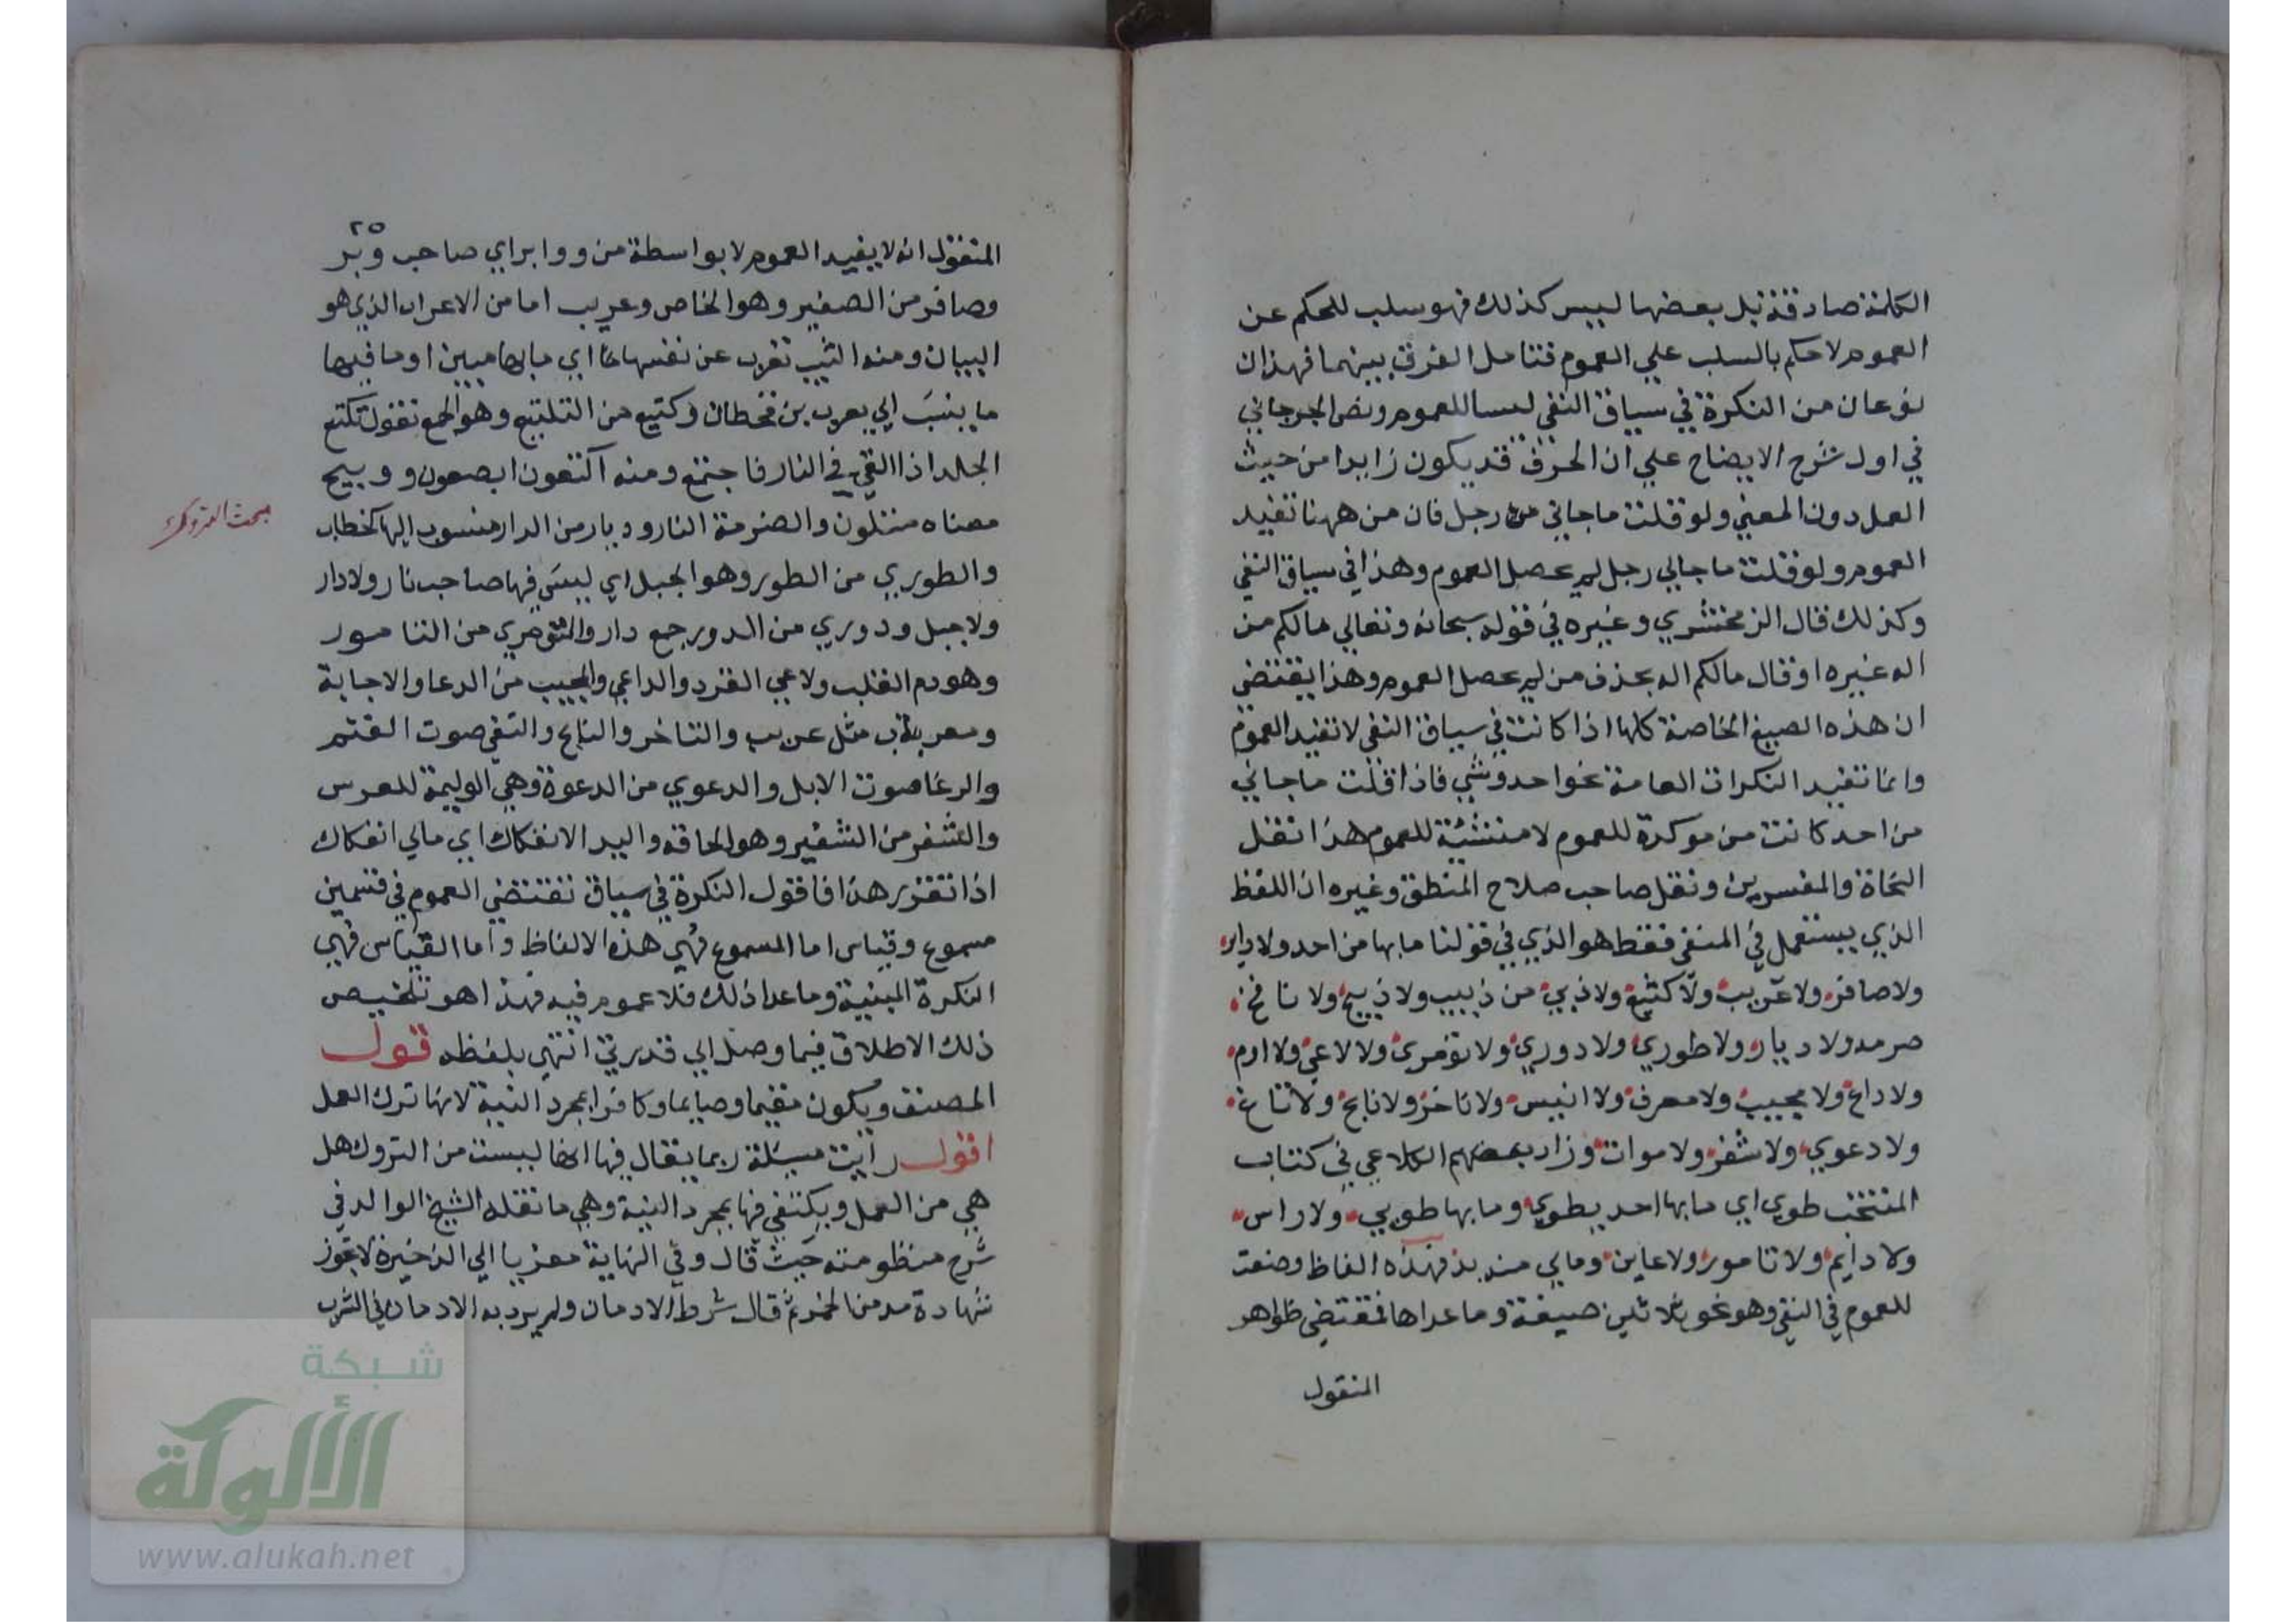 الكلمة صادقة بل بعضها ليس كذلك فهو سلب للحكم عن
العموم لا حكم بالسلب علي العموم فتامل الفرق بينهما فهذان
نوعان من النكرة في سياق النفي ليسا للعموم ونص الجرجاني
في اول شرح الايضاح علي ان الحرف قد يكون زايدا من حيث
العمل دون المعني ولو قلت ماجاني من رجل فان من ههنا تفيد
العموم ولو قلت ماجاني رجل لم يحصل العموم وهذا في سياق النفي
وكذلك قال الزمخشري وغيره في قوله سبحانه وتعالي مالكم من
اله غيره اوقال مالكم اله بحذف من لم يحصل العموم وهذا يقتضي
ان هذه الصيغ الخاصة كلها اذا كانت في سياق النفي لا تفيد العموم
وانما تفيد النكرات العامة نحو احد وشي فاذا قلت ماجاني
من احد كانت من موكدة للعموم لا منشئة للعموم هذا نقل
النحاة والمفسرين ونقل صاحب صلاح المنطق وغيره ان اللفظ
الذي يستعمل في المنفي فقط هو الذي في قولنا مابها من احد ولا وابر
ولا صافر ولا عريب ولا كتيع ولا دبي من دبيب ولا دبيج ولا نافخ
ضرمه ولا ديار ولا طوري ولا دوري ولا تومري ولا لاعي ولا ارم
ولا داع ولا مجيب ولا معرف ولا انيس ولا ناخر ولا نابح ولا ثاغ
ولا دعوي ولا شفر ولا موات وزاد بعضهم الكلاعي في كتاب
المنتخب طوي اي مابها احد يطوي ومابها طويي ولا راس
ولا دايم ولا تامور ولا عاين ومالي منه بد فهذه الفاظ وضعت
للعموم في النفي وهو نحو ثلاثين صيغة وما عداها فمقتضي ظواهر
المنقول
٢٥
المنقول انه لا يفيد العموم لا بواسطة من ووابر اي صاحب وبر
وصافر من الصفير وهو الخاص وعريب اما من الاعراب الذي هو
البيان ومنه الثيب تعرب عن نفسها اي مابها مبين او مافيها
ما ينسب الي يعرب بن قحطان وكتيع من التكتع وهو الجمع تقول تكتع
الجلد اذا القي في النار فاجتمع ومنه اكتعون ابصعون ودبيج
معناه متلون والضرمة النار وديار من الدار منسوب اليها كخطاب
والطوري من الطور وهو الجبل اي ليس فيها صاحب نار ولا دار
ولا جبل ودوري من الدور جمع دار والتومري من التامور
وهو دم القلب ولاعي القرد والداعي والمجيب من الدعا والاجابة
ومعرب مثل عريب والناخر والنابح والثغي صوت الغنم
والرغا صوت الابل والدعوي من الدعوة وهي الوليمة للعرس
والشفر من الشفير وهو الحافه والبد الانفكاك اي مالي انفكاك
اذا تقرر هذا فاقول النكرة في سياق تقتضي العموم في قسمين
مسموع وقياس اما المسموع فهي هذه الالفاظ واما القياس فهي
النكرة المبنية وما عدا ذلك فلا عموم فيه فهذا هو تلخيص
ذلك الاطلاق فيما وصل الي قدرتي انتهي بلفظه قول
المصنف ويكون مقيما وصايما وكافرا بمجرد النية لانها ترك العمل
اقول رايت مسئلة ربما يقال فيها انها ليست من التروك هل
هي من العمل ويكتفي فيها بمجرد النية وهي ما نقله الشيخ الوالد في
شرح منظومته حيث قال وفي النهاية معزيا الي الذخيرة لا تجوز
شهادة مدمن الخمر ثم قال شرط الادمان ولم يرد به الادمان في الشرب
مبحث التروك
شبكة
الألوكة
www.alukah.net